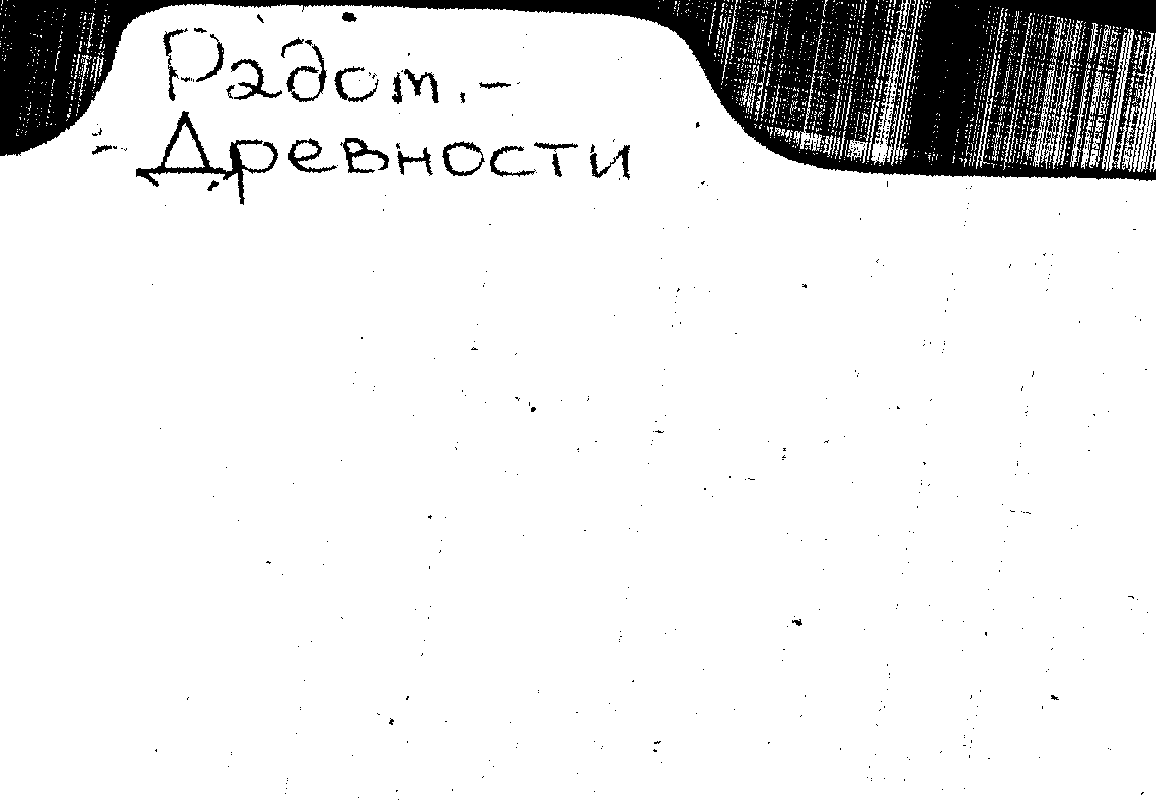 Радом.-
-Древности